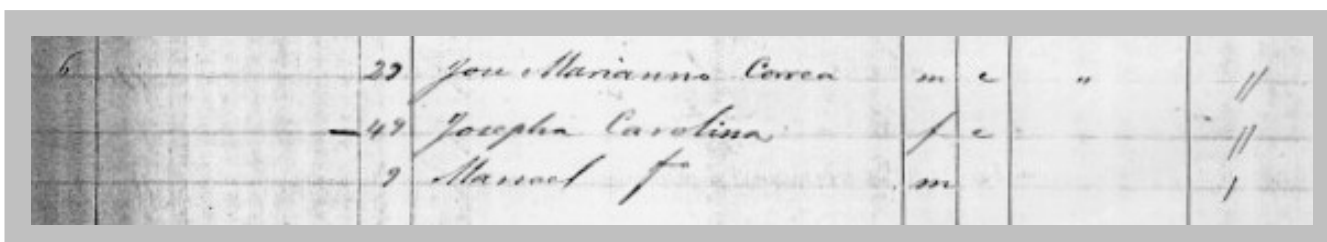 6 29 Jose Marianno Correa m c " //
49 Josepha Carolina f c //
9 Manoel f° m /